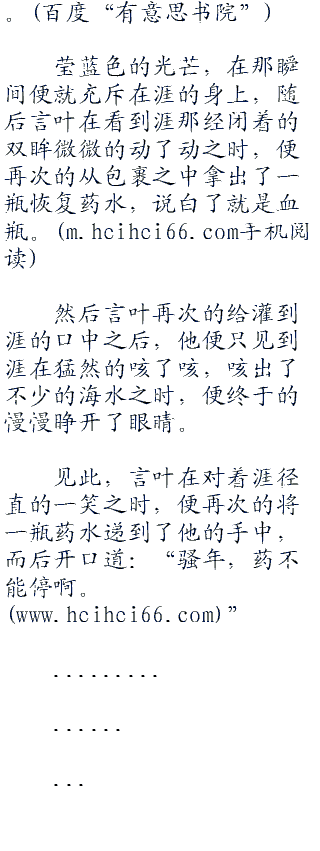 。(百度“有意思书院”)
莹蓝色的光芒，在那瞬
间便就充斥在涯的身上，随
后言叶在看到涯那经闭着的
双眸微微的动了动之时，便
再次的从包裹之中拿出了一
瓶恢复药水，说白了就是血
瓶。(m.hcihci66.com手机阅
读)
然后言叶再次的给灌到
涯的口中之后，他便只见到
涯在猛然的咳了咳，咳出了
不少的海水之时，便终于的
慢慢睁开了眼睛。
见此，言叶在对着涯径
直的一笑之时，便再次的将
一瓶药水递到了他的手中，
而后开口道：“骚年，药不
能停啊。
(www.hcihci66.com)”
.........
......
...